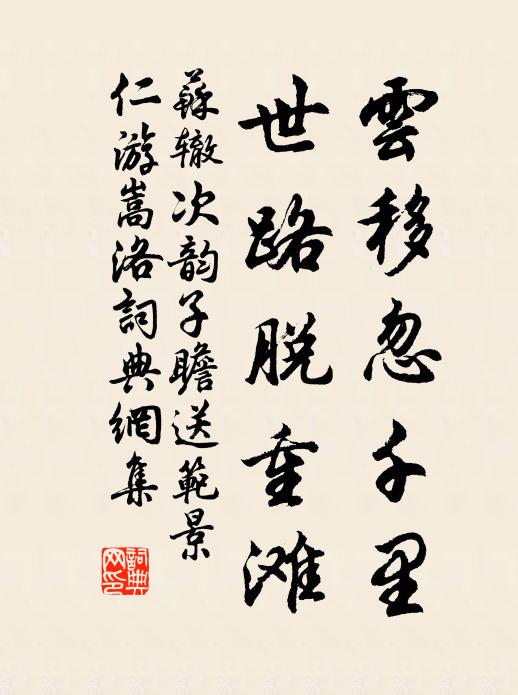 雲移忽千里
世路脱重滩
蘇辙次韵子瞻送範景
仁游嵩洛詞典網集
詞典网印